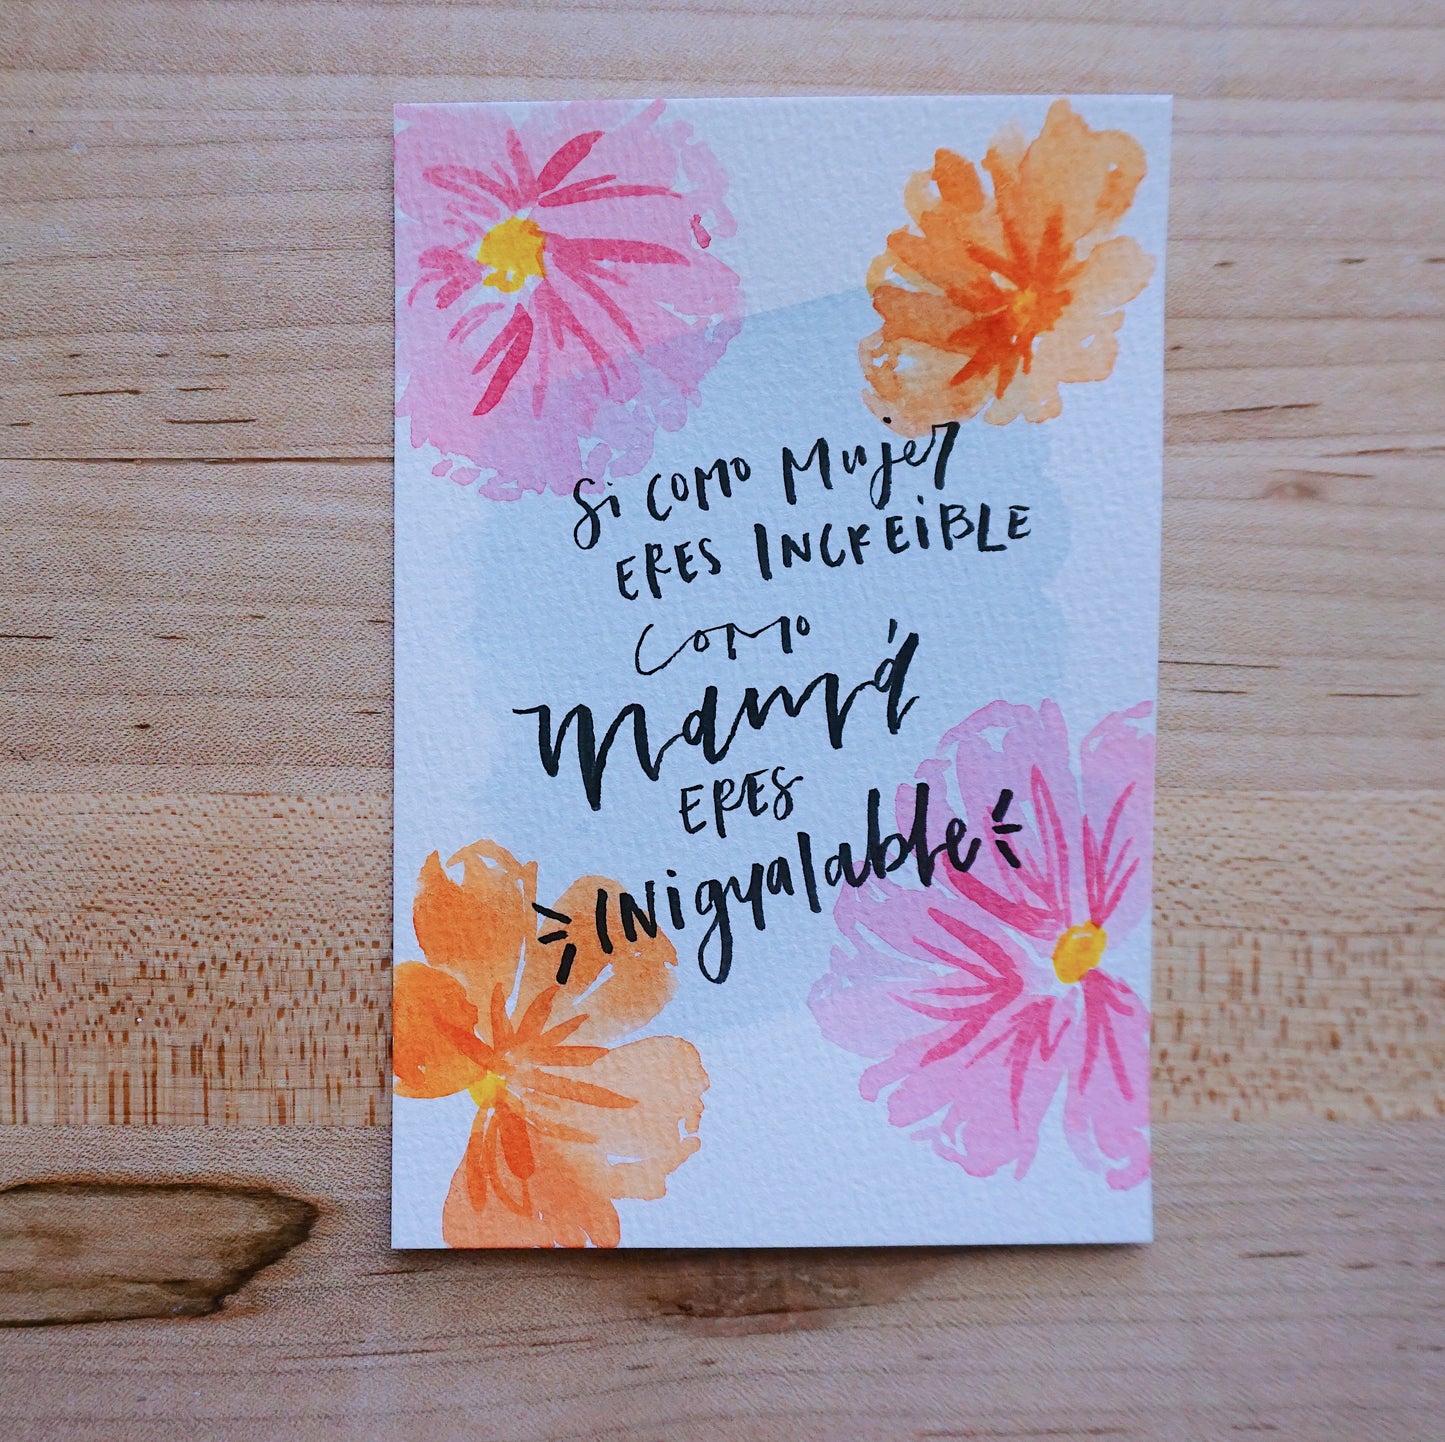 Si como Mujer
ERES INCREiBLE
como
Mamá
ERES
INigualable